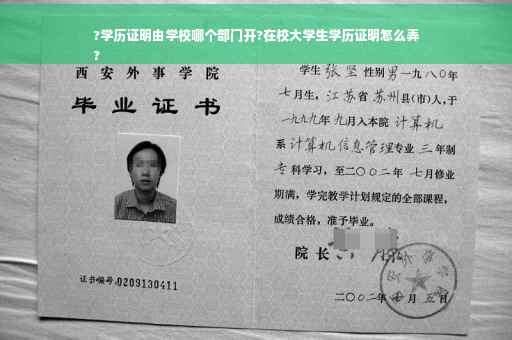 ?学历证明由学校哪个部门开?在校大学生学历证明怎么弄
?
西安外事学院
毕业证书
证书编号:0209130411
学生张坚性别男一九八〇年
七月生,江苏省苏州县(市)人,于
一九九九年九月入本院计算机
系计算机信息管理专业三年制
专科学习,至二〇〇二年七月修业
期满,学完教学计划规定的全部课程,
成绩合格,准予毕业。
院长
二〇〇二年 月五日